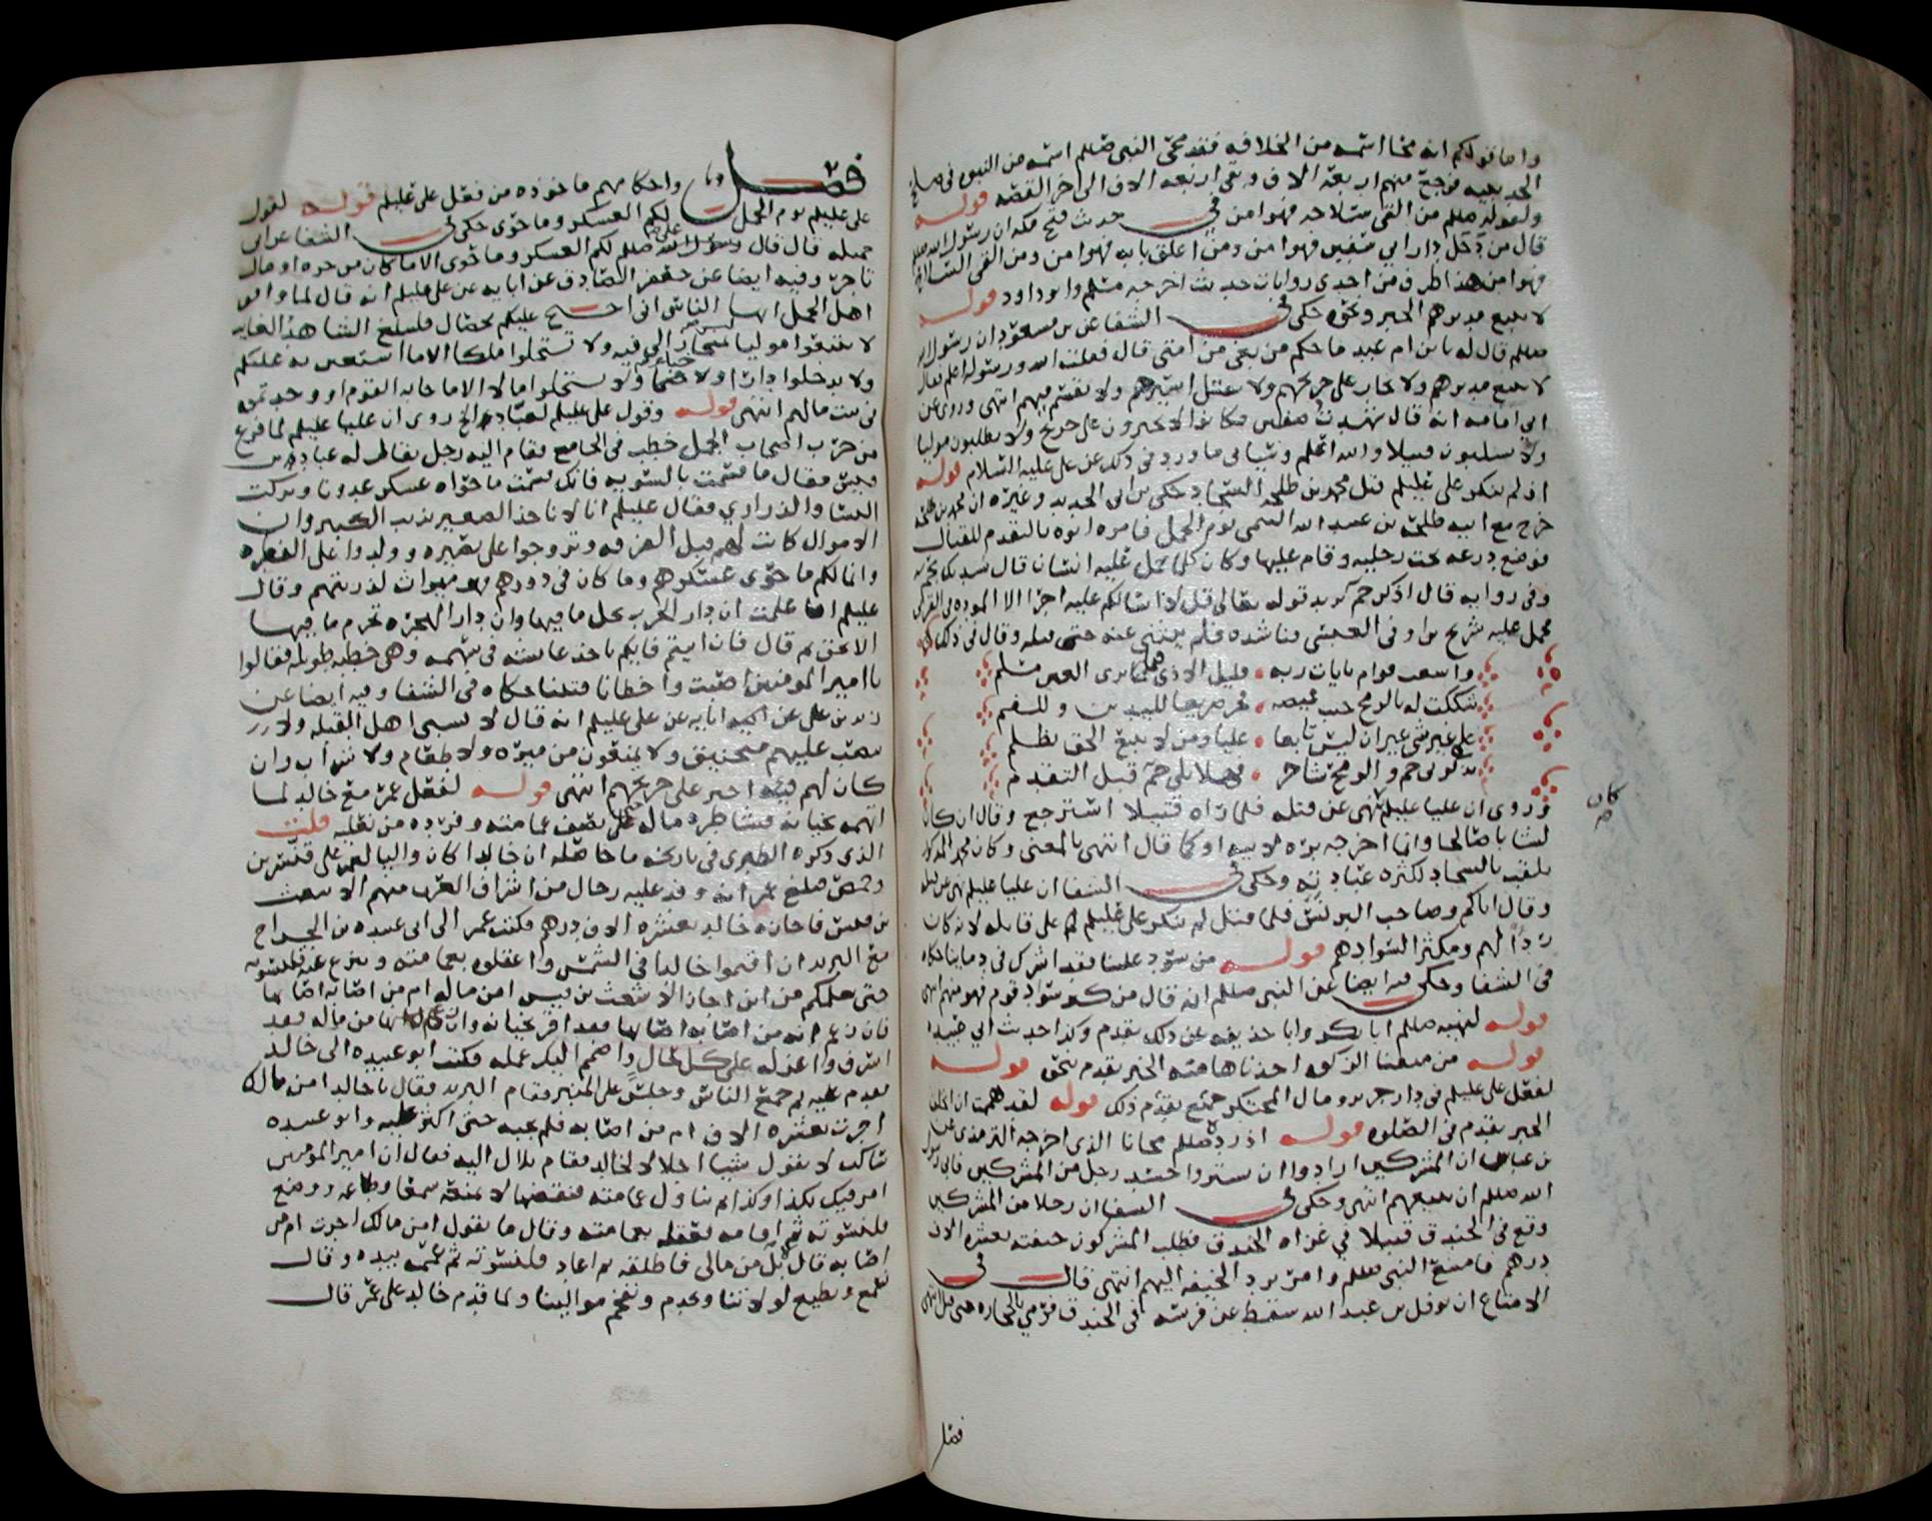 واما قولكم انه محا اسمه من الخلافه فقد محى النبي صللم اسمه من النبوه في صلح
الحديبيه فرجع منهم اربعة الاف وبقي اربعه الاف الى اخر القصه قوله
ولقوله صللم من القى سلاحه فهو امن في حديث فتح مكه ان رسول الله صللم
قال من دخل دار ابي سفين فهو امن ومن اغلق بابه فهو امن ومن القى السلاح
فهو امن هذا طرف من احدى روايات حديث اخرجه مسلم وابو داود قوله
لا يتبع مدبرهم الخبر ونحوه حكى في الشفا عن بن مسعود ان رسول الله
صللم قال له يا بن ام عبد ما حكم من بغى من امتي قال فقلت الله ورسوله اعلم فقال
لا يتبع مدبرهم ولا يجار على جريحهم ولا يقتل اسيرهم ولا يقسم فيهم انتهى وروي عن
ابي امامه انه قال شهدت صفين فكانوا لا يجيزون على جريح ولا يطلبون موليا
ولا يسلبون قتيلا والله اعلم وسياتي ما ورد في ذلك عن علي عليه السلام قوله
اذ لم ينكر علي عليلم قتل محمد بن طلحه السجاد حكى بن ابي الحديد وغيره ان محمد بن طلحه
خرج مع ابيه طلحة بن عبيد الله التيمي يوم الجمل فامره ابوه بالتقدم للقتال
فوضع درعه تحت رجليه وقام عليها وكان كلما حمل عليه انسانا قال نشدتك بحم
وفي روايه قال اذكرحم يريد قوله تعالى قل لا اسالكم عليه اجرا الا الموده في القربى
فحمل عليه شريح بن اوفى العبسي فناشده فلم ينثني عنه حتى قتله وقال في ذلك
واشعث قوام بايات ربه قليل الاذى فيما ترى العين مسلم
شككت له بالرمح جيب قميصه فخر صريعا لليدين وللفم
على غير شي غير ان ليس تابعا عليا ومن لا يتبع الحق يظلم
يذكرني حم والرمح شاجر فهلا تلى حم قبل التقدم
وروي ان عليا عليلم نهى عن قتله فلما راه قتيلا استرجع وقال ان كان
كان صح
لشابا صالحا وانما اخرجه بره لابيه او كما قال انتهى بالمعنى وكان محمد المذكور
يلقب بالسجاد لكثره عبادته وحكى في الشفا ان عليا عليلم نهى عن قتله
وقال اياكم وصاحب البرنس فلما قتل لم ينكر علي عليلم على قاتله لانه كان
ردا لهم ومكثر السوادهم قوله من سود علينا فقد اشرك في دماينا حكاه
في الشفا وحكى فيه ايضا عن النبي صللم انه قال من كثر سواد قوم فهو منهم انتهى
قوله لنهيه صللم ابا بكر وابا حذيفه عن ذلك تقدم وكذا حديث ابي عبيدا
قوله من منعنا الزكوه اخذناها منه الخبر تقدم نحوه قوله
لفعل علي عليلم في دار جرير ومال المحتكر جميع تقدم ذلك قوله لقد هممت ان اخلف
الخبر تقدم في الصلوه قوله اذ رد صللم مجانا الذي اخرجه الترمذي عن
بن عباس ان المشركين ارادوا ان يشتروا جسد رجل من المشركين فابى رسول
الله صللم ان يبيعهم انتهى وحكى في الشفا ان رجلا من المشركين
وقع في الخندق قتيلا في غزاه الخندق فطلب المشركون جيفته بعشره الاف
درهم فامتنع النبي صللم وامر برد الجيفه اليهم انتهى قال في
الامتاع ان نوفل بن عبد الله سقط عن فرسه في الخندق فرمي بالحجاره حتى قتل انتهى
فصل
فصل واحكامهم ماخوذه من فعل علي عليلم قوله لقول
علي عليلم يوم الجمل لكم العسكر وما حوى حكى في الشفا عن ابي
جميله قال قال علي صللم لكم العسكر وما حوى الا ما كان من حره او مال
تاجر وفيه ايضا عن جعفر الصادق عن ابايه عن علي عليلم انه قال لما واقف
اهل الجمل ايها الناس اني احتج عليكم بخصال فليبلغ الشاهد الغايب
لا تتبعوا موليا ليس بمنحاز الى فيه ولا تستحلوا ملكا الا ما استعين به عليكم
ولا تدخلوا دارا ولا خباء ولا تستحلوا مالا الا ما جابه القوم او وجدتموه
في بيت مالهم انتهى قوله وقول علي عليلم لعباد الخ روي ان عليا عليلم لما فرغ
من حرب اصحاب الجمل خطب في الجامع فقام اليه رجل يقال له عباد بن
قيس فقال ما قسمت بالسويه فانك قسمت ما حواه عسكر عدونا وتركت
النسا والذراري فقال عليلم انا لا ناخذ الصغير بذنب الكبير وان
الاموال كانت لهم قبل الفرقه وتزوجوا على بصيره وولدوا على الفطره
وانما لكم ما حوى عسكرهم وما كان في دورهم فهو ميراث لذريتهم وقال
عليلم اما علمت ان دار الحرب يحل ما فيها وان دار الهجره تحرم ما فيها
الا بحق ثم قال فان ابيتم فايكم ياخذ عايشه في سهمه وهي خطبه طويله فقالوا
يا امير المومنين اصبت واخطانا فتبنا حكاه في الشفا وفيه ايضا عن
زيد بن علي عن ابيه ابايه عن علي عليلم انه قال لا يسبى اهل القبله ولا
ينصب عليهم منجنيق ولا يمنعون من ميره ولا طعام ولا شراب وان
كان لهم فيه اجهز على جريحهم انتهى قوله لفعل عمر مع خالد لما
اتهمه بخيانه فشاطره ماله حتى نصف عمامته وفرده من نعليه قلت
الذي ذكره الطبري في تاريخه ما حاصله ان خالدا كان واليا لعمر على قنسرين
وحمص فبلغ عمر انه وفد عليه رجال من اشراف العرب منهم الاشعث
بن قيس فاجازه خالد بعشره الاف درهم فكتب عمر الى ابي عبيده بن الجراح
مع البريد ان اقيموا خالدا في الشمس واعقلوه بعمامته وينزع عنه قلنسوته
حتى يعلمكم من اين اجاز الاشعث بن قيس امن ماله ام من اصابه اصابها
فان زعم انه من اصابه اصابها فقد اقر بخيانه وان زعم انها من ماله فقد
اسرف واعزله على كل حال واضمم اليك عمله فكتب ابو عبيده الى خالد
فقدم عليه ثم جمع الناس وجلس على المنبر فقام البريد فقال يا خالد امن مالك
اجزت بعشره الاف ام من اصابه فلم يجبه حتى اكثر عليه وابو عبيده
ساكت لا يقول شيا اجلالا لخالد فقام بلال اليه فقال ان امير المومنين
امر فيك بكذا وكذا ثم تناول عمامته فنقضها لا يمنعه سمعا وطاعه ووضع
قلنسوته ثم اقامه فعقله بعمامته وقال ما تقول امن مالك اجزت ام من
اصابه قال بل من مالي فاطلقه ثم اعاد قلنسوته ثم عممه بيده وقال
نسمع ونطيع لولاتنا ونخدم ونفخم موالينا ولما قدم خالد على عمر قال